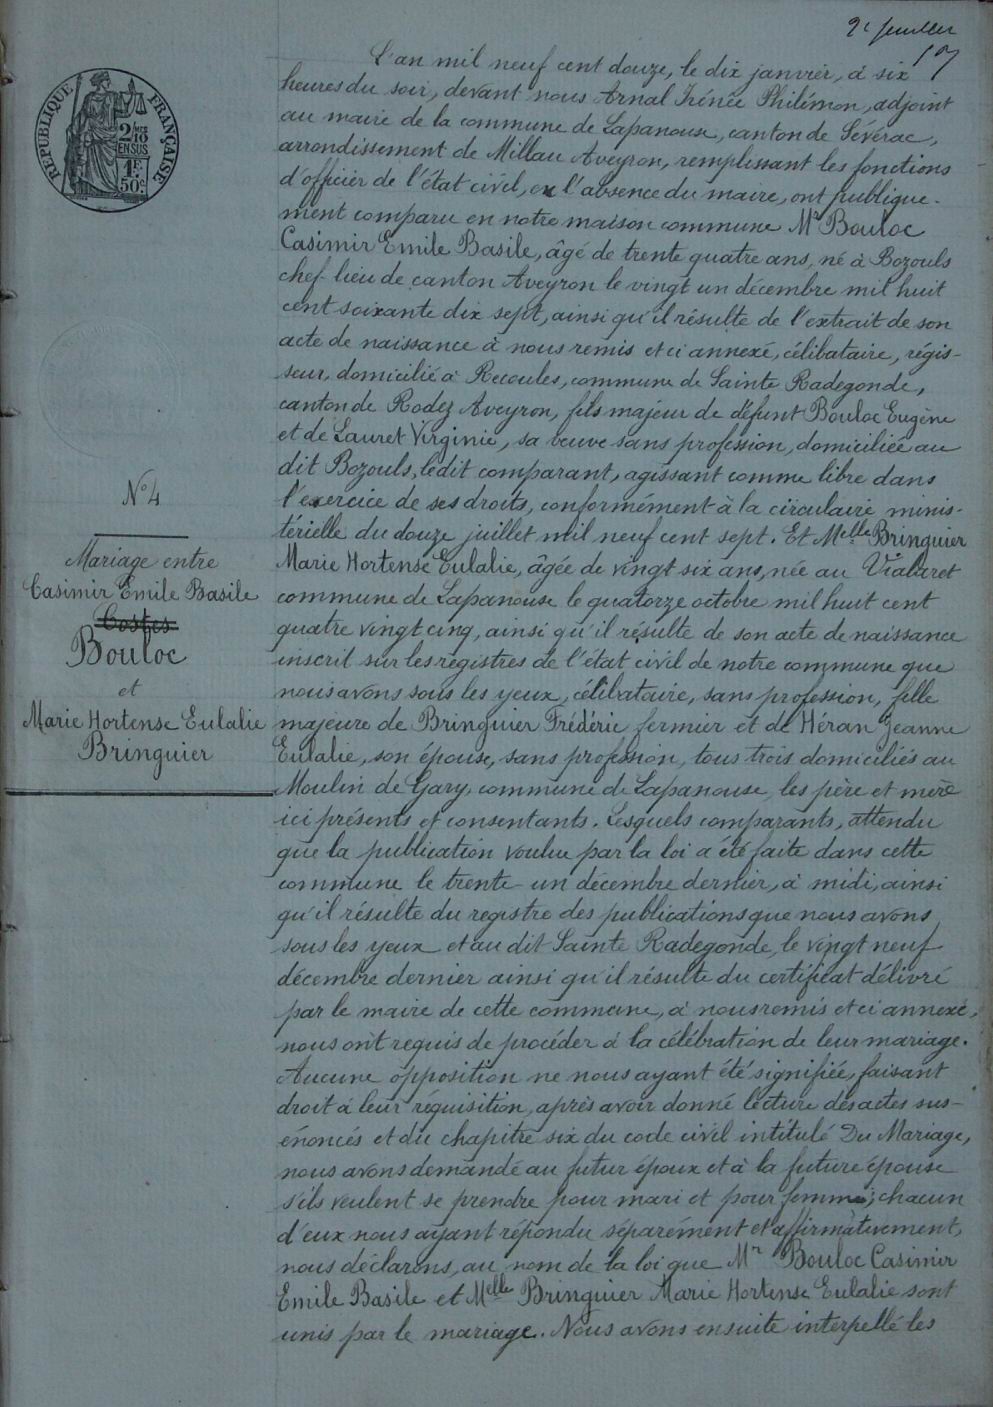 2e feuillet
L'an mil neuf cent douze, le dix janvier, à six
heures du soir, devant nous Arnal Irénée Philémon, adjoint
au maire de la commune de Lapanouse, canton de Sévérac,
arrondissement de Millau Aveyron, remplissant les fonctions
d'officier de l'état civil, en l'absence du maire, ont publique-
ment comparu en notre maison commune Mr Bouloc
Casimir Emile Basile, âgé de trente quatre ans, né à Bozouls
chef-lieu de canton Aveyron le vingt un décembre mil huit
cent soixante dix sept, ainsi qu'il résulte de l'extrait de son
acte de naissance à nous remis et ci annexé, célibataire, régis-
seur, domicilié à Recoules, commune de Sainte Radegonde,
canton de Rodez Aveyron, fils majeur de défunt Bouloc Eugène
et de Lauret Virginie, sa veuve sans profession, domiciliée au
dit Bozouls, ledit comparant, agissant comme libre dans
l'exercice de ses droits, conformément à la circulaire minis-
térielle du douze juillet mil neuf cent sept. Et Melle Bringuier
Marie Hortense Eulalie, âgée de vingt six ans, née au Vialaret
commune de Lapanouse le quatorze octobre mil huit cent
quatre vingt cinq, ainsi qu'il résulte de son acte de naissance
inscrit sur les registres de l'état civil de notre commune que
nous avons sous les yeux, célibataire, sans profession, fille
majeure de Bringuier Frédéric fermier et de Héran Jeanne
Eulalie, son épouse, sans profession, tous trois domiciliés au
Moulin de Gary, commune de Lapanouse, les père et mère
ici présents et consentants. Lesquels comparants, attendu
que la publication voulue par la loi a été faite dans cette
commune le trente-un décembre dernier, à midi, ainsi
qu'il résulte du registre des publications que nous avons
sous les yeux et au dit Sainte Radegonde, le vingt neuf
décembre dernier ainsi qu'il résulte du certificat délivré
par le maire de cette commune, à nous remis et ci annexé,
nous ont requis de procéder à la célébration de leur mariage.
Aucune opposition ne nous ayant été signifiée, faisant
droit à leur réquisition, après avoir donné lecture des actes sus-
énoncés et du chapitre six du code civil intitulé Du Mariage,
nous avons demandé au futur époux et à la future épouse
s'ils veulent se prendre pour mari et pour femme; chacun
d'eux nous ayant répondu séparément et affirmativement,
nous déclarons, au nom de la loi que Mr Bouloc Casimir
Emile Basile et Melle Bringuier Marie Hortense Eulalie sont
unis par le mariage. Nous avons ensuite interpellé les
RÉPUBLIQUE FRANÇAISE
2/10
EN SUS
1F.
50c.
N° 4
Mariage entre
Casimir Emile Basile
Costes
Bouloc
et
Marie Hortense Eulalie
Bringuier